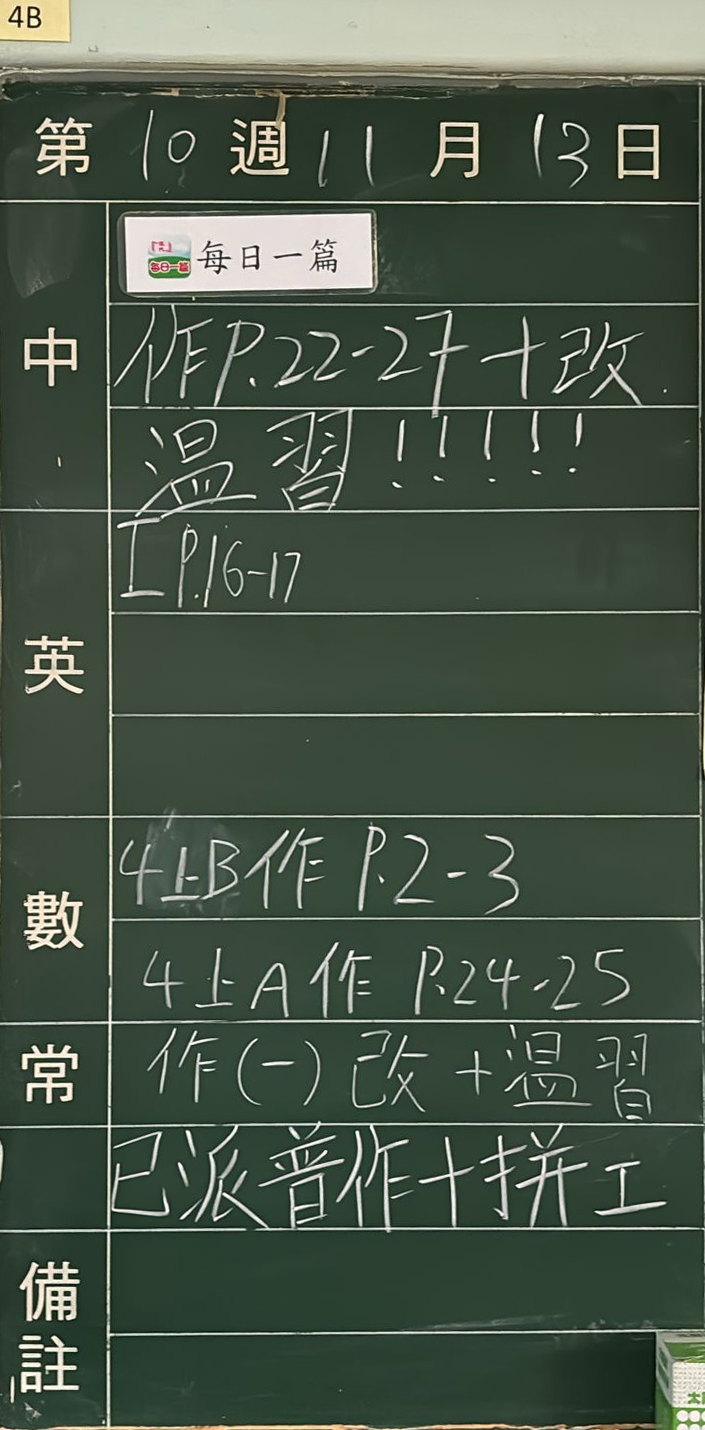 4B
第 10 週 11 月 13 日
每日一篇
每日一篇
中
作P.22-27+改
温習!!!!!
英
工P.16-17
數
4上B作 P.2-3
4上A作 P.24-25
常
作(一)改+温習
已派普作+拼工
備註